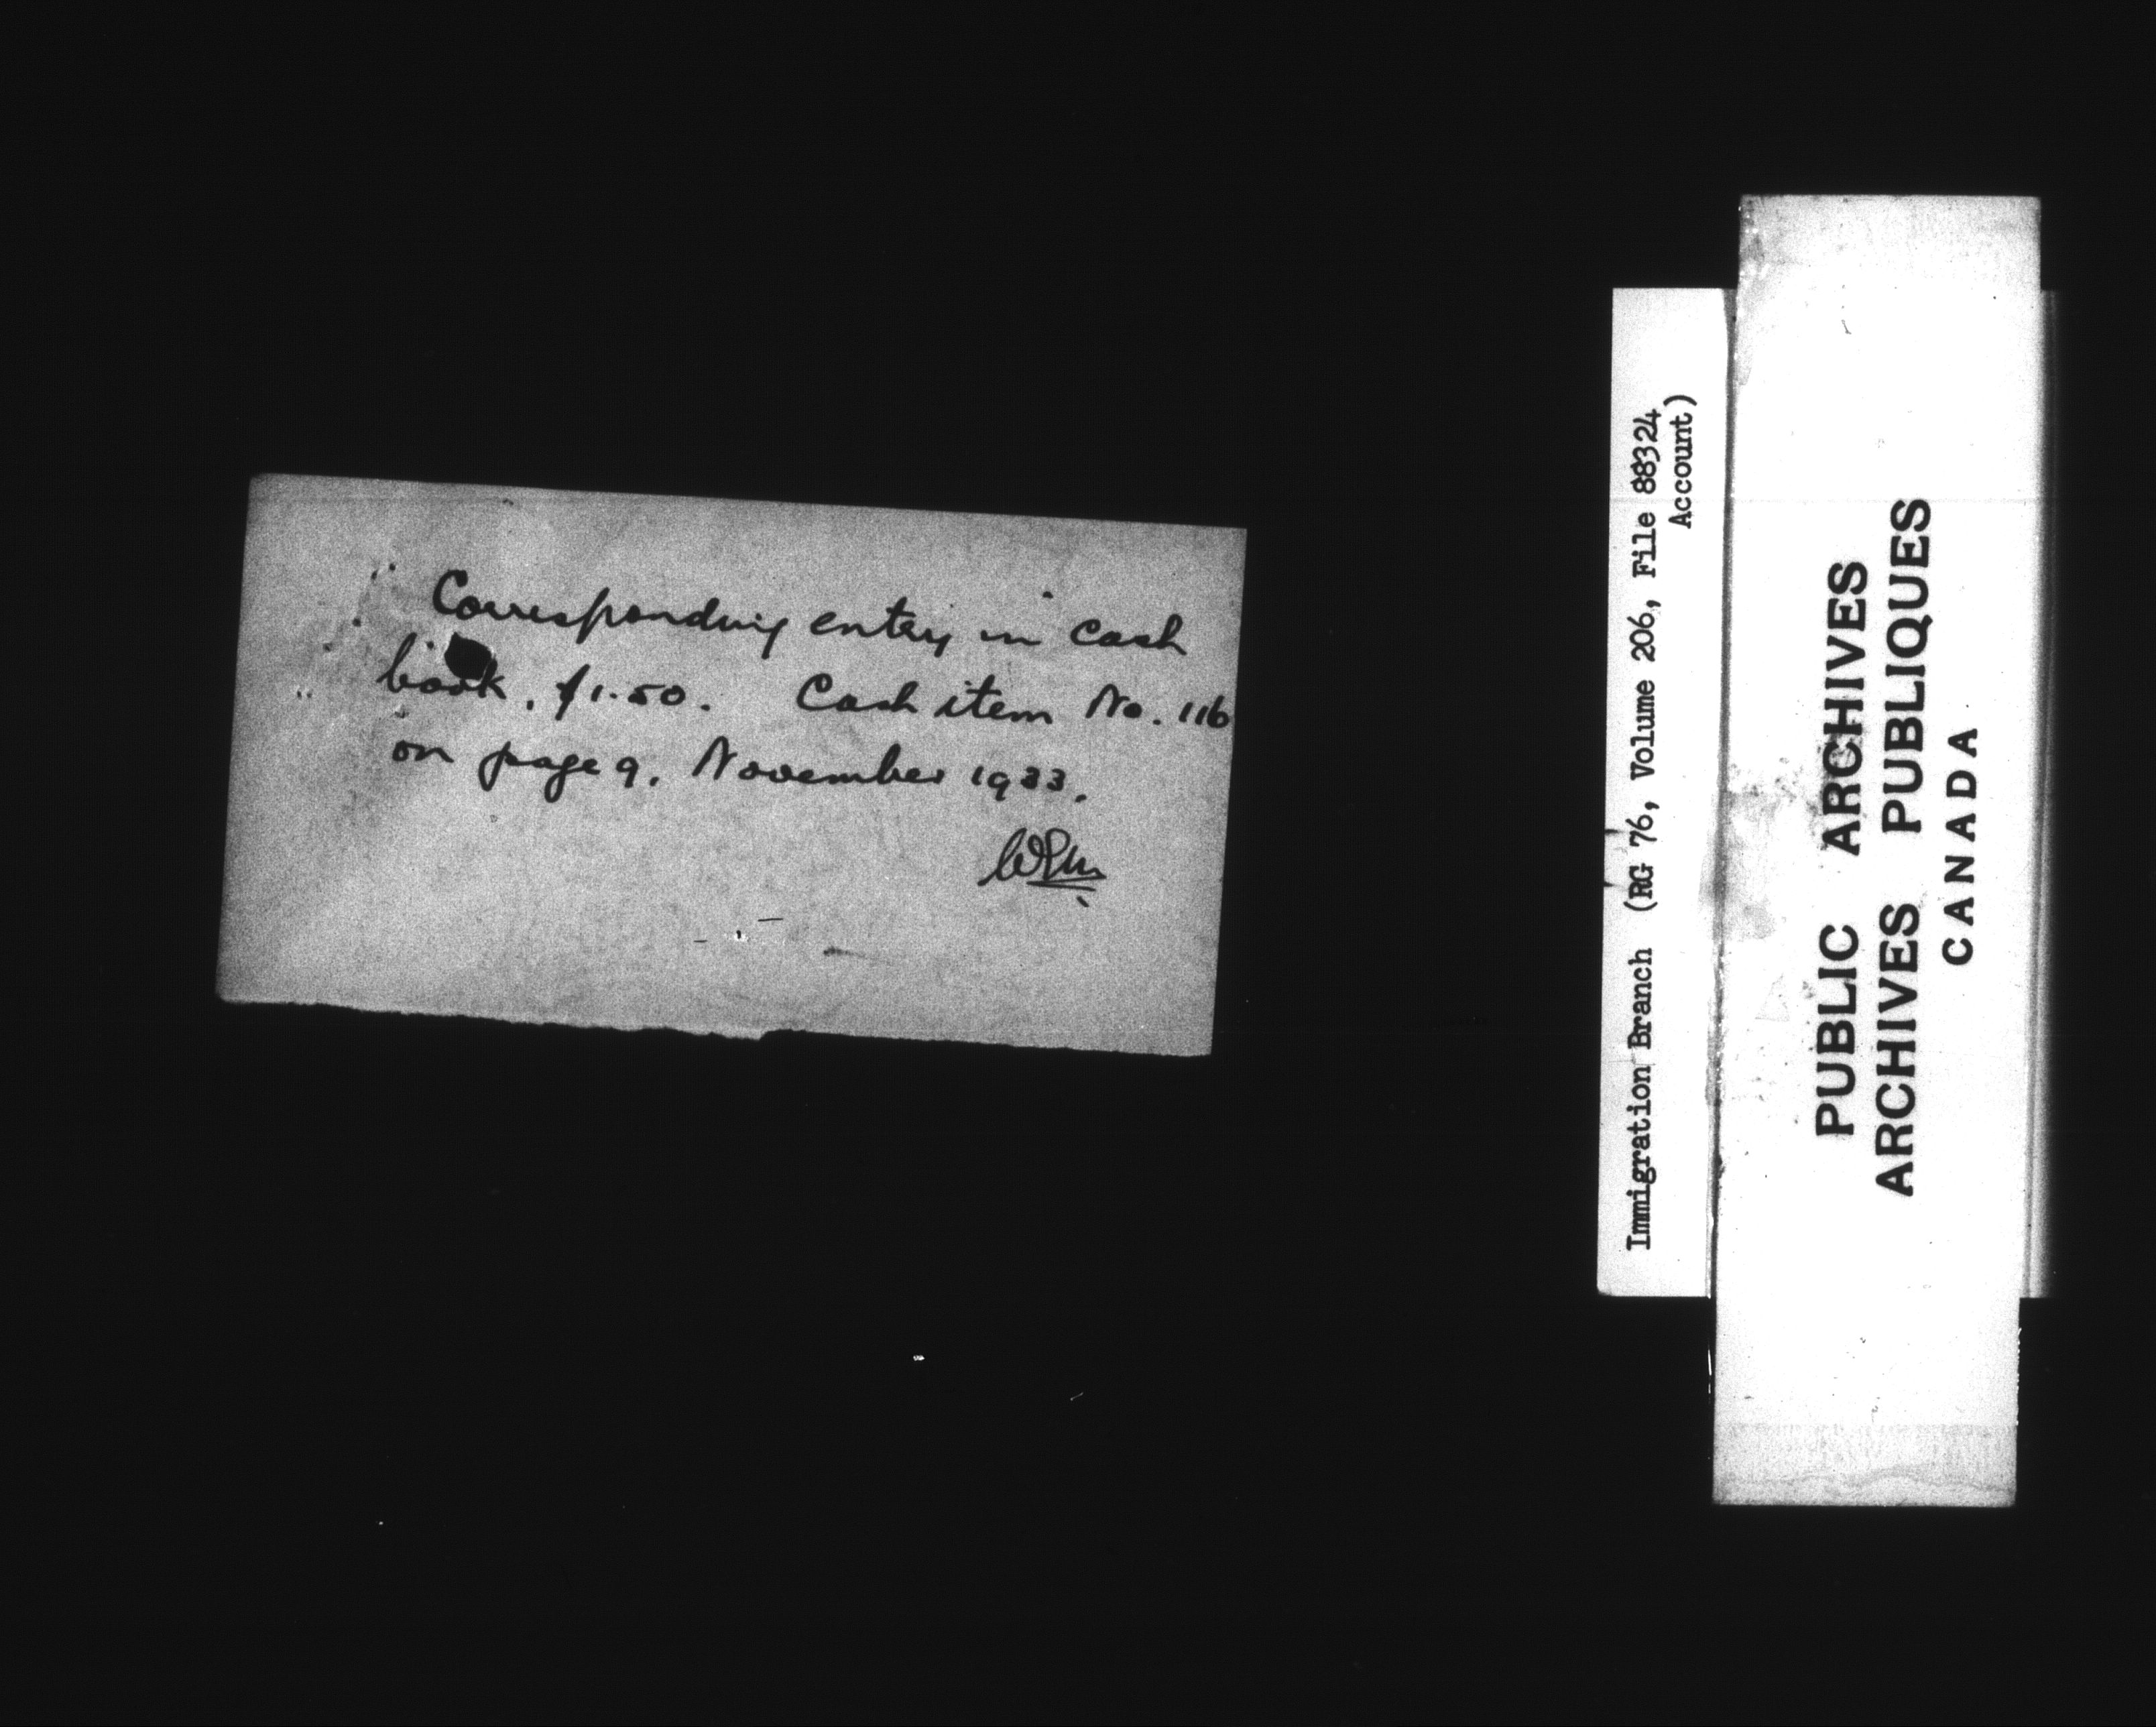 Corresponding entry in cash
book, $1.50. Cash item No. 116
on page 9. November 1933.
Immigration Branch (RG 76, Volume 206, File 88324
Account)
PUBLIC ARCHIVES
ARCHIVES PUBLIQUES
CANADA